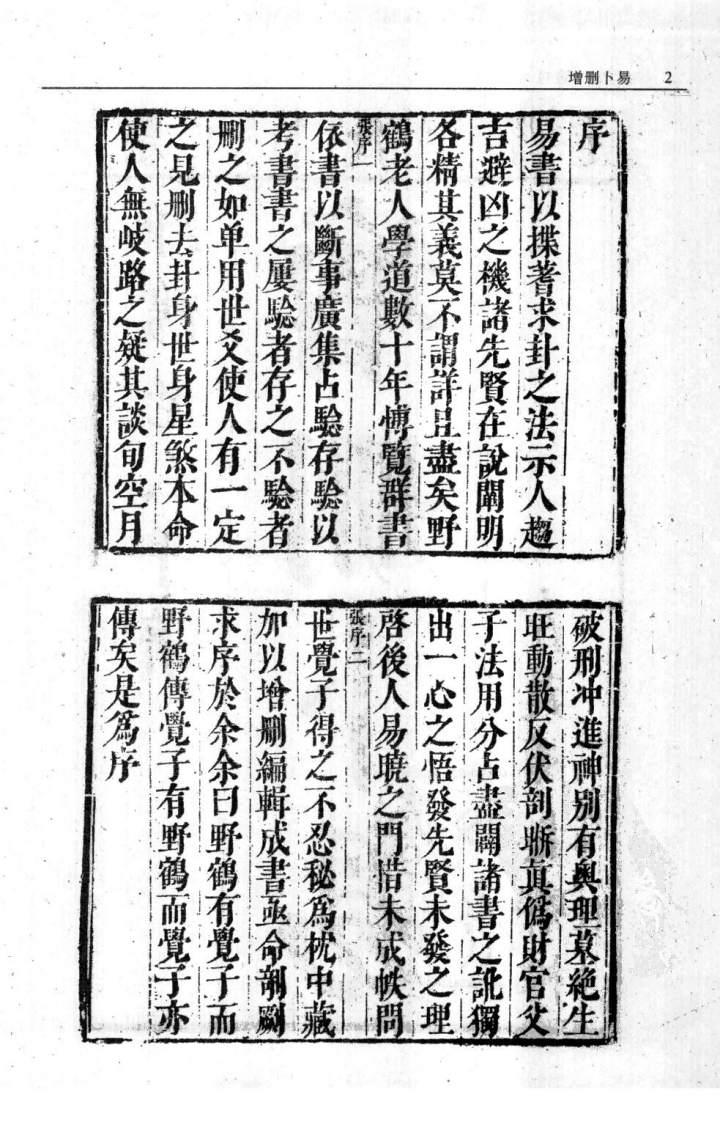 增删卜易 2
序
易書以揲蓍求卦之法示人趨
吉避凶之機諸先賢在說闡明
各精其義莫不謂詳且盡矣野
鶴老人學道數十年愽覽群書
張序一
依書以斷事廣集占驗存驗以
考書書之屢驗者存之不驗者
刪之如单用世爻使人有一定
之見刪去卦身世身星煞本命
使人無岐路之疑其談旬空月
破刑冲進神别有奥理墓絶生
旺動散反伏剖晣真僞財官父
子法用分占盡闢諸書之訛獨
出一心之悟發先賢未發之理
啓後人易曉之門惜未成帙問
張序二
世覺子得之不忍秘爲枕中藏
加以增刪編輯成書亟命剞劂
求序於余余曰野鶴有覺子而
野鶴傳覺子有野鶴而覺子亦
傳矣是爲序